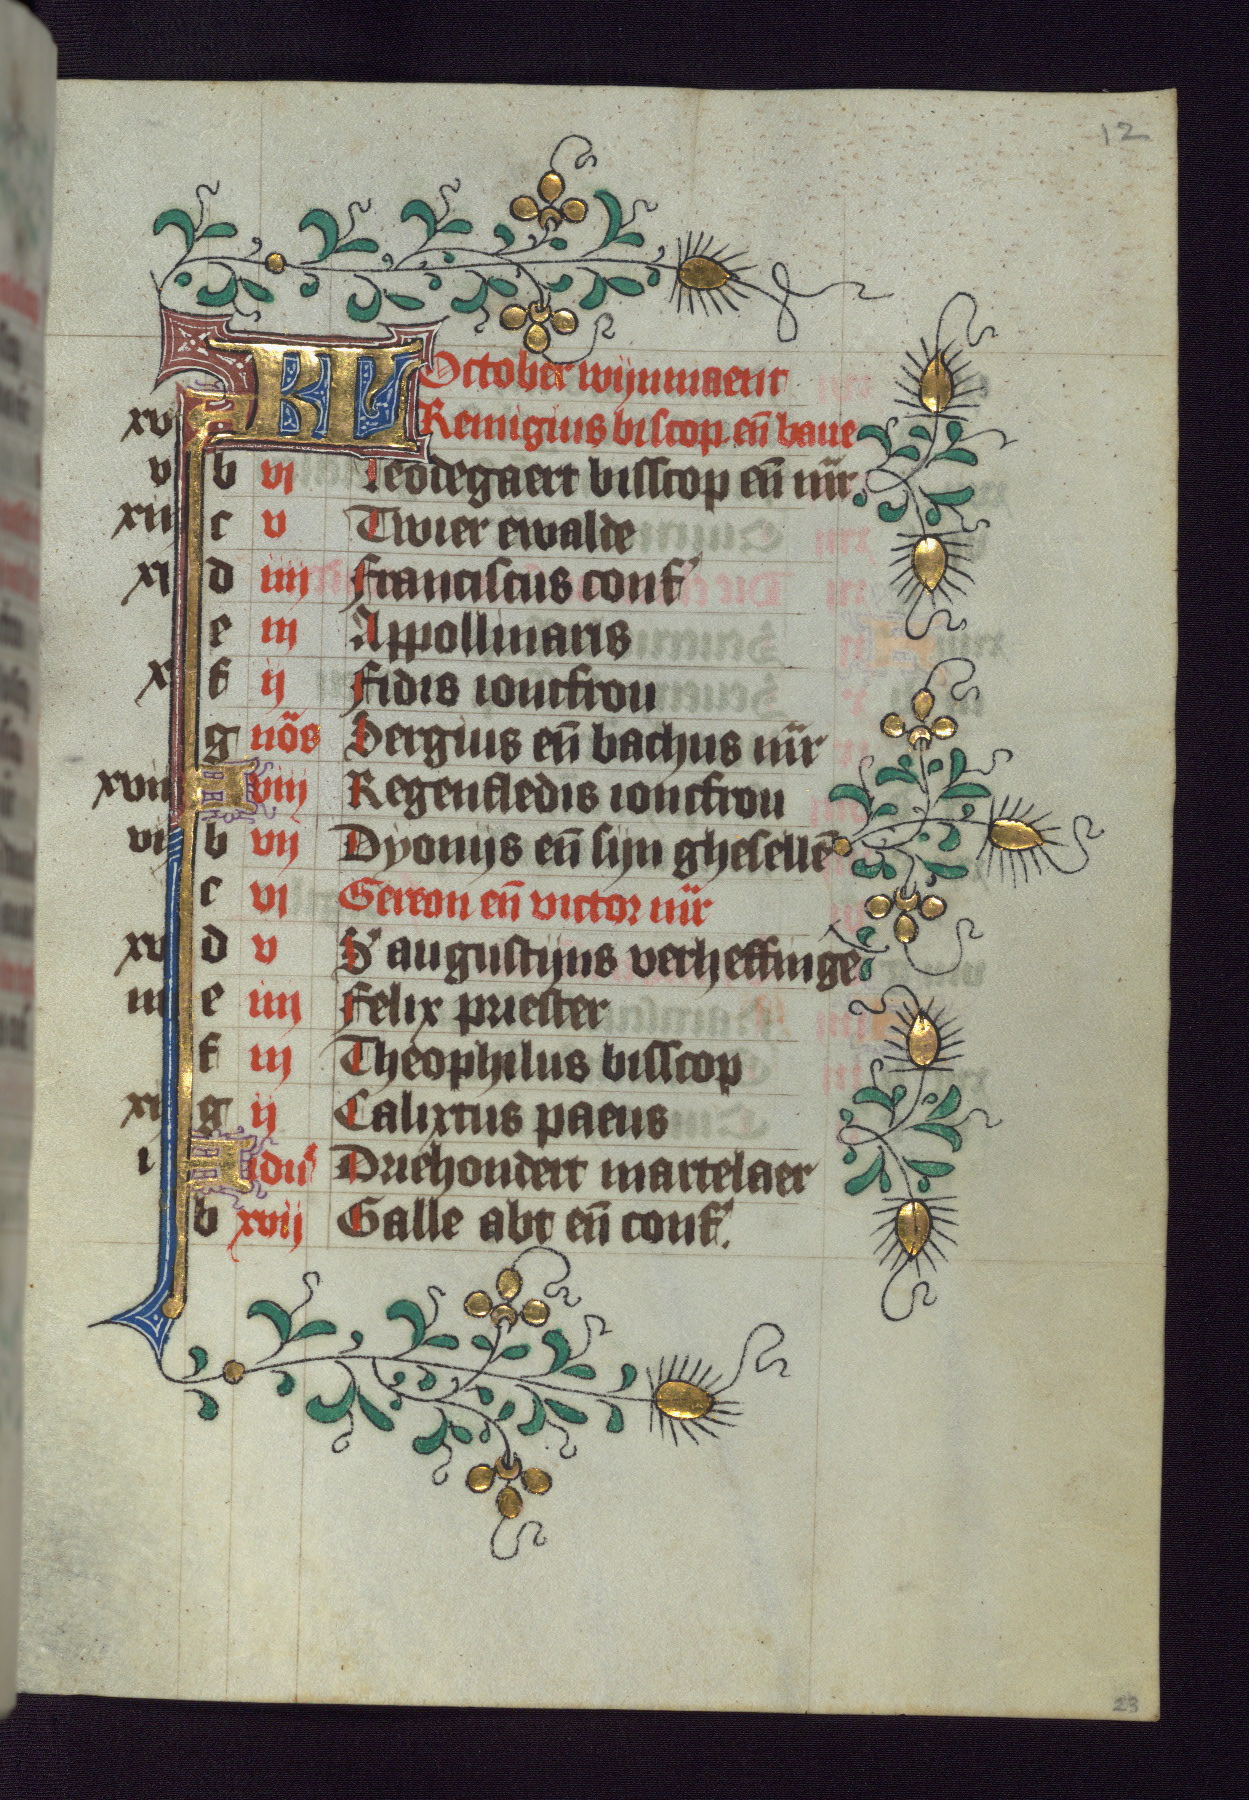 12
KL October wijnmaent
xvi A Remigius biscop en̄ baue
v b vi Leodegaert bisscop en̄ mr̄
xiii c v Twier ewalde
ii d iiii Franciscus conf'
e iii Appollinaris
x f ii Fidis ioncfrou
g nōs Sergius en̄ bachus mr̄
xviii A viii Regenfledis ioncfrou
vii b vii Dyonijs en̄ sijn ghesellē
c vi Gereon en̄ victor mr̄
xv d v S' augustijns verheffinge
iiii e iiii Felix priester
f iii Theophilus bisscop
xii g ii Calixtus paeus
i A idus Driehondert martelaer
b xvii Galle abt en̄ conf'.
23